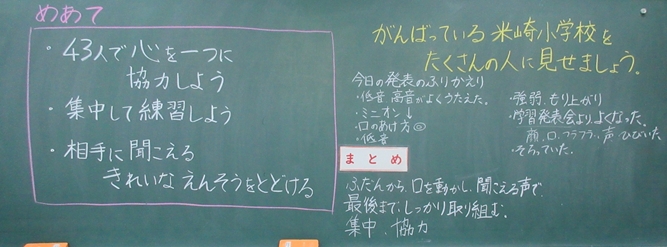 めあて
・43人で心を一つに
協力しよう
・集中して練習しよう
・相手に聞こえる
きれいなえんそうをとどける
がんばっている米崎小学校を
たくさんの人に見せましょう。
今日の発表のふりかえり
・低音 高音がよくうたえた。
・ミニオン↓
・口のあけ方◎
・低音
・強弱、もり上がり
・学習発表会より、よくなった。
顔、口、フラフラ、声 ひびいた
・そろっていた。
まとめ
ふだんから、口を動かし、聞こえる声で、
最後まで、しっかり取り組む。
集中、協力